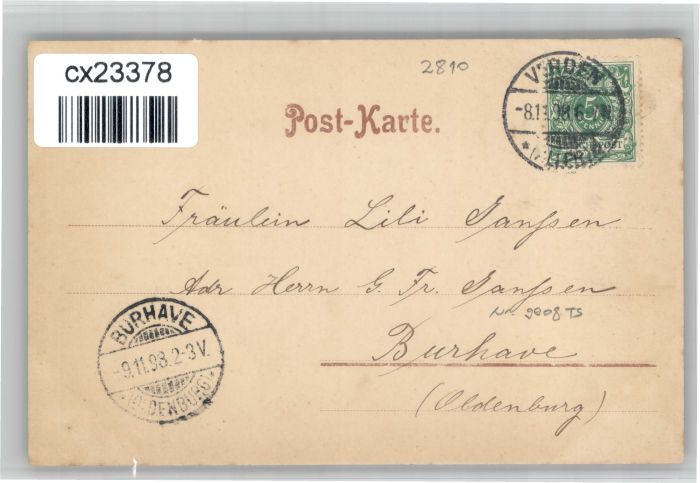 cx23378
2810
VERDEN
-8.11.98.6
*(ALLER)*
5
Post-Karte.
Fräulein Lili Janssen
Adr Herrn G. Fr. Janssen
9908 TS
Burhave
(Oldenburg)
BURHAVE
-9.11.98.2-3V.
(OLDENBURG)